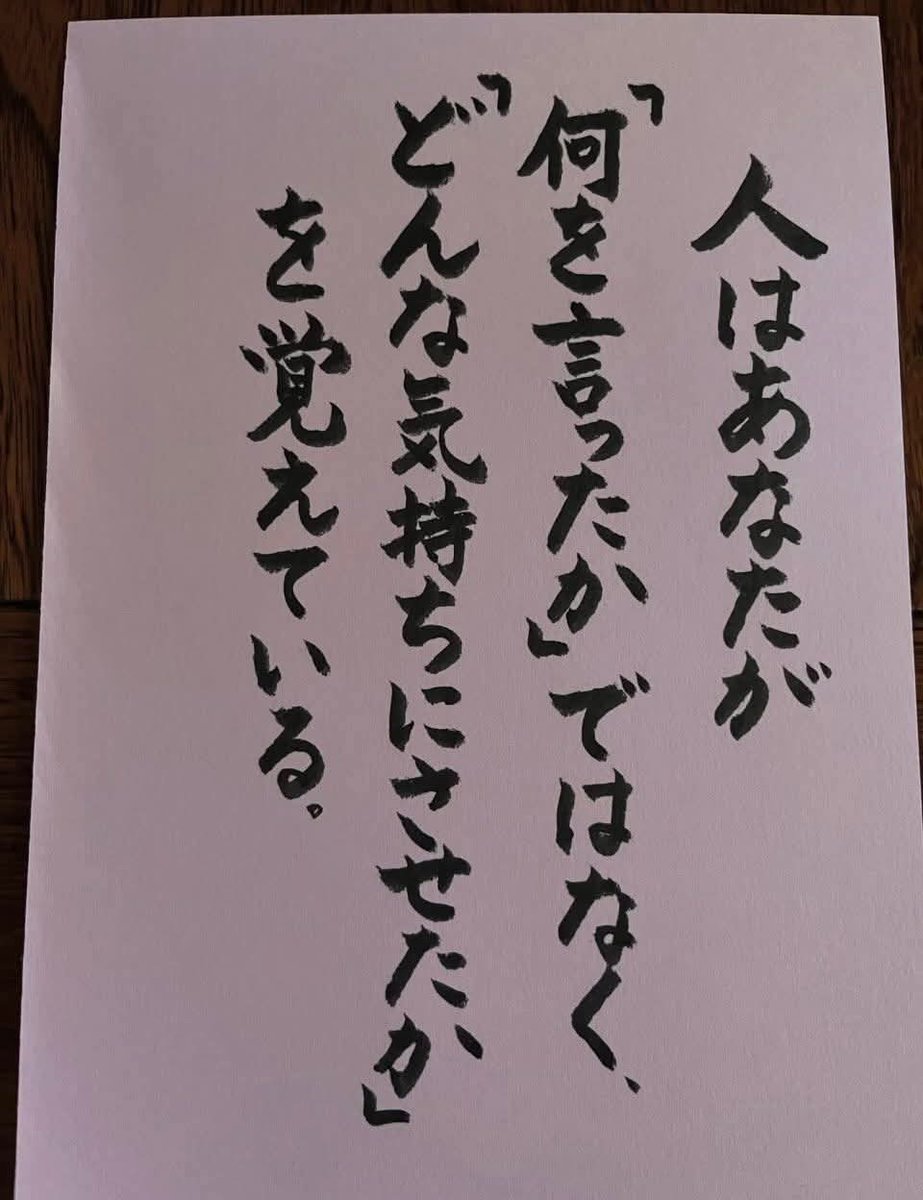 人はあなたが
「何を言ったか」ではなく、
「どんな気持ちにさせたか」
を覚えている。